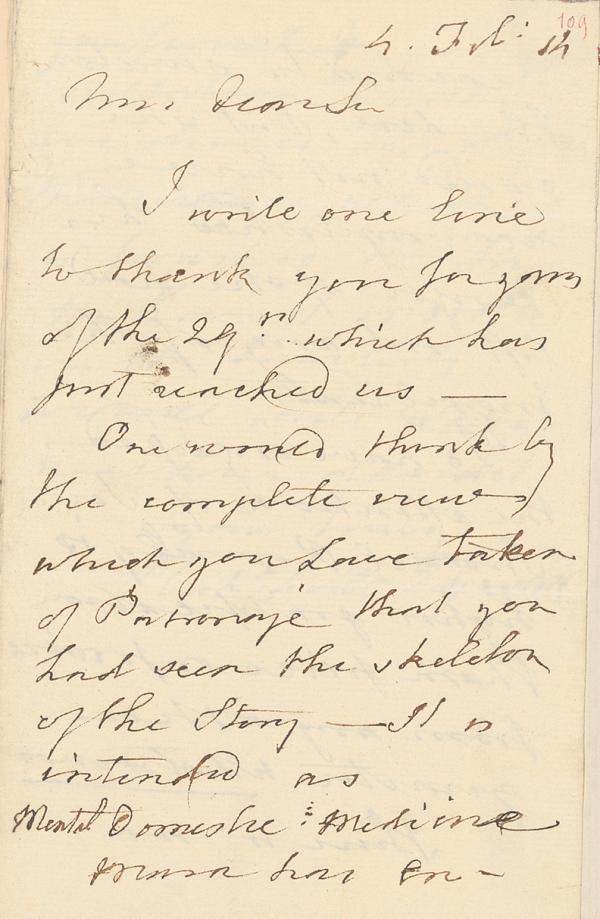 109
4. Feb: 14
My dear Sir
I write one line
to thank you for yours
of the 29th which has
just reached us —
One would think by
the complete view
which you have taken
of Patronage that you
had seen the skeleton
of the Story — It is
intended as
Mental Domestic Medicine
has en-